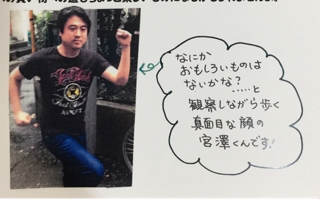 なにか
おもしろいものは
ないかな?
……と
観察しながら歩く
真面目な顔の
宮澤くんです!